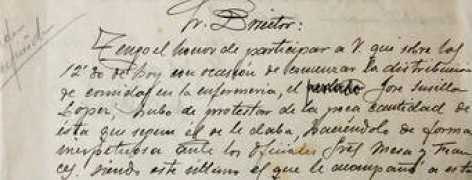 Sr. Director:
Tengo el honor de participar a V. que sobre las
12'30 de hoy con ocasión de comenzar la distribución
de comidas en la enfermeria, el José Susilla
Lopez, hubo de protestar de la poca cantidad de
esta que segun el se le daba, haciéndolo de forma
irrespetuosa ante los Oficiales Sres Mesa y Fran
ces; siendo este ultimo el que le acompañó a este